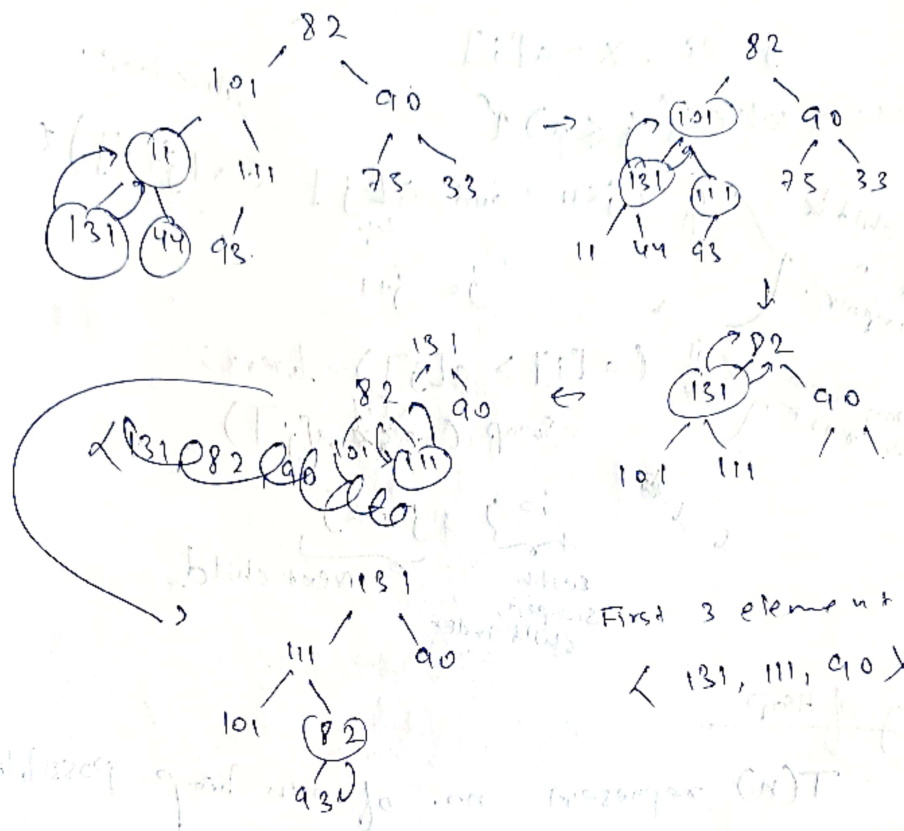 82
101 90
11 111 75 33
131 44 93
→
82
101 90
131 111 75 33
11 44 93
↓
82
131 90
101 111
←
131
82 90
101 111
131
111 90
101 82
93
First 3 element
< 131, 111, 90 >